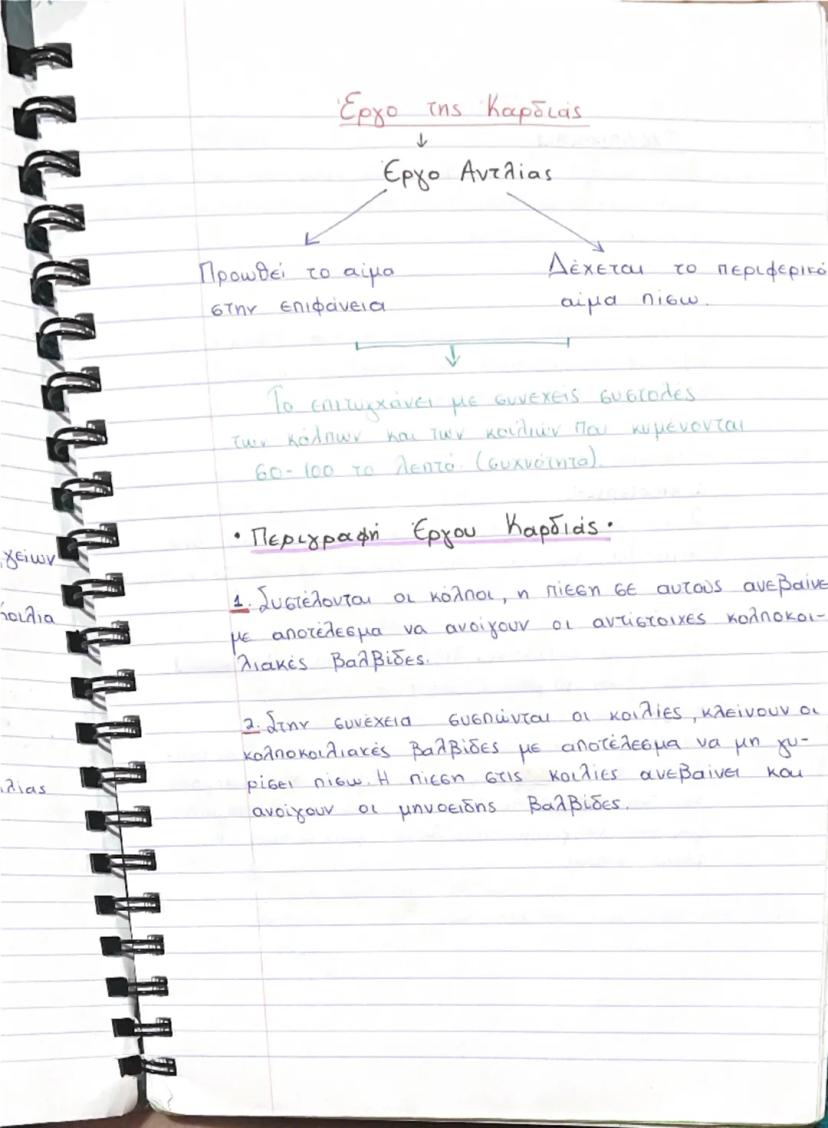 Έργο της Καρδιάς
↓
Έργο Αντλίας
Προωθεί το αίμα
στην επιφάνεια
Δέχεται το περιφερικό
αίμα πίσω.
Το επιτυγχάνει με συνεχείς συστολές
των κόλπων και των κοιλιών που κυμένονται
60-100 το λεπτό. (συχνότητα).
• Περιγραφή Έργου Καρδιάς •
1. Συστέλονται οι κόλποι, η πίεση σε αυτούς ανεβαίνε
με αποτέλεσμα να ανοίγουν οι αντίστοιχες κολποκοι-
λιακές βαλβίδες.
2. Στην συνέχεια συσπώνται οι κοιλίες, κλείνουν οι
κολποκοιλιακές βαλβίδες με αποτέλεσμα να μη γυ-
ρίσει πίσω. Η πίεση στις κοιλίες ανεβαίνει και
ανοίγουν οι μηνοειδης βαλβίδες.
γείων
οιλία
λίας